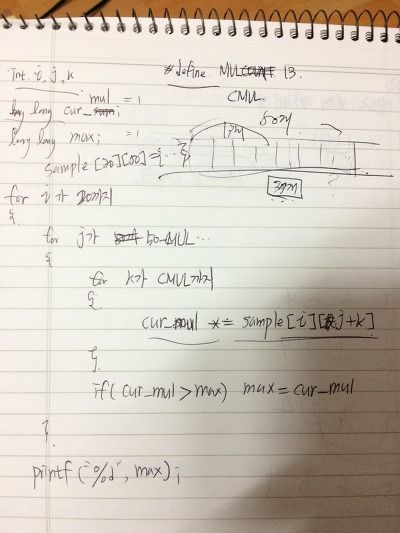 Int i, j, k
#define MULCOUNT 13.
CMUL.
long long cur_mul = 1
long long max; = 1
50개
13개
sample [20][50] = {...}
39개
for i가 20까지
{
for j가 50-MUL...
{
for k가 CMUL까지
{
cur_mul *= sample [i][j+k]
}
if( cur_mul > max) max = cur_mul
}
printf("%d", max);